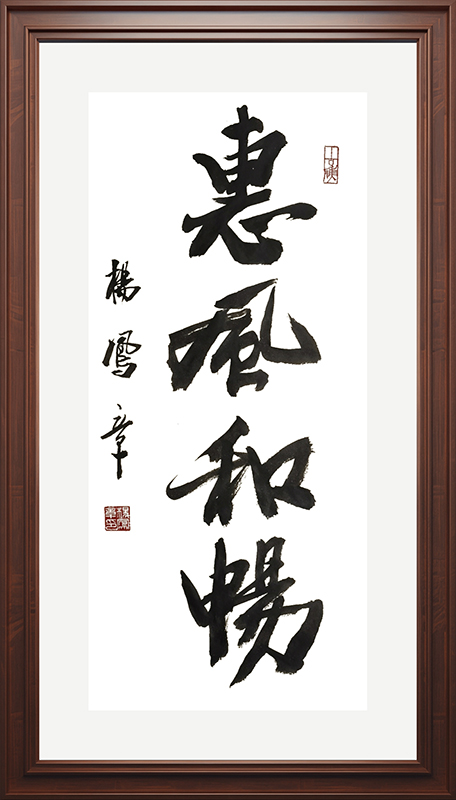 惠風和暢
楊鳳章